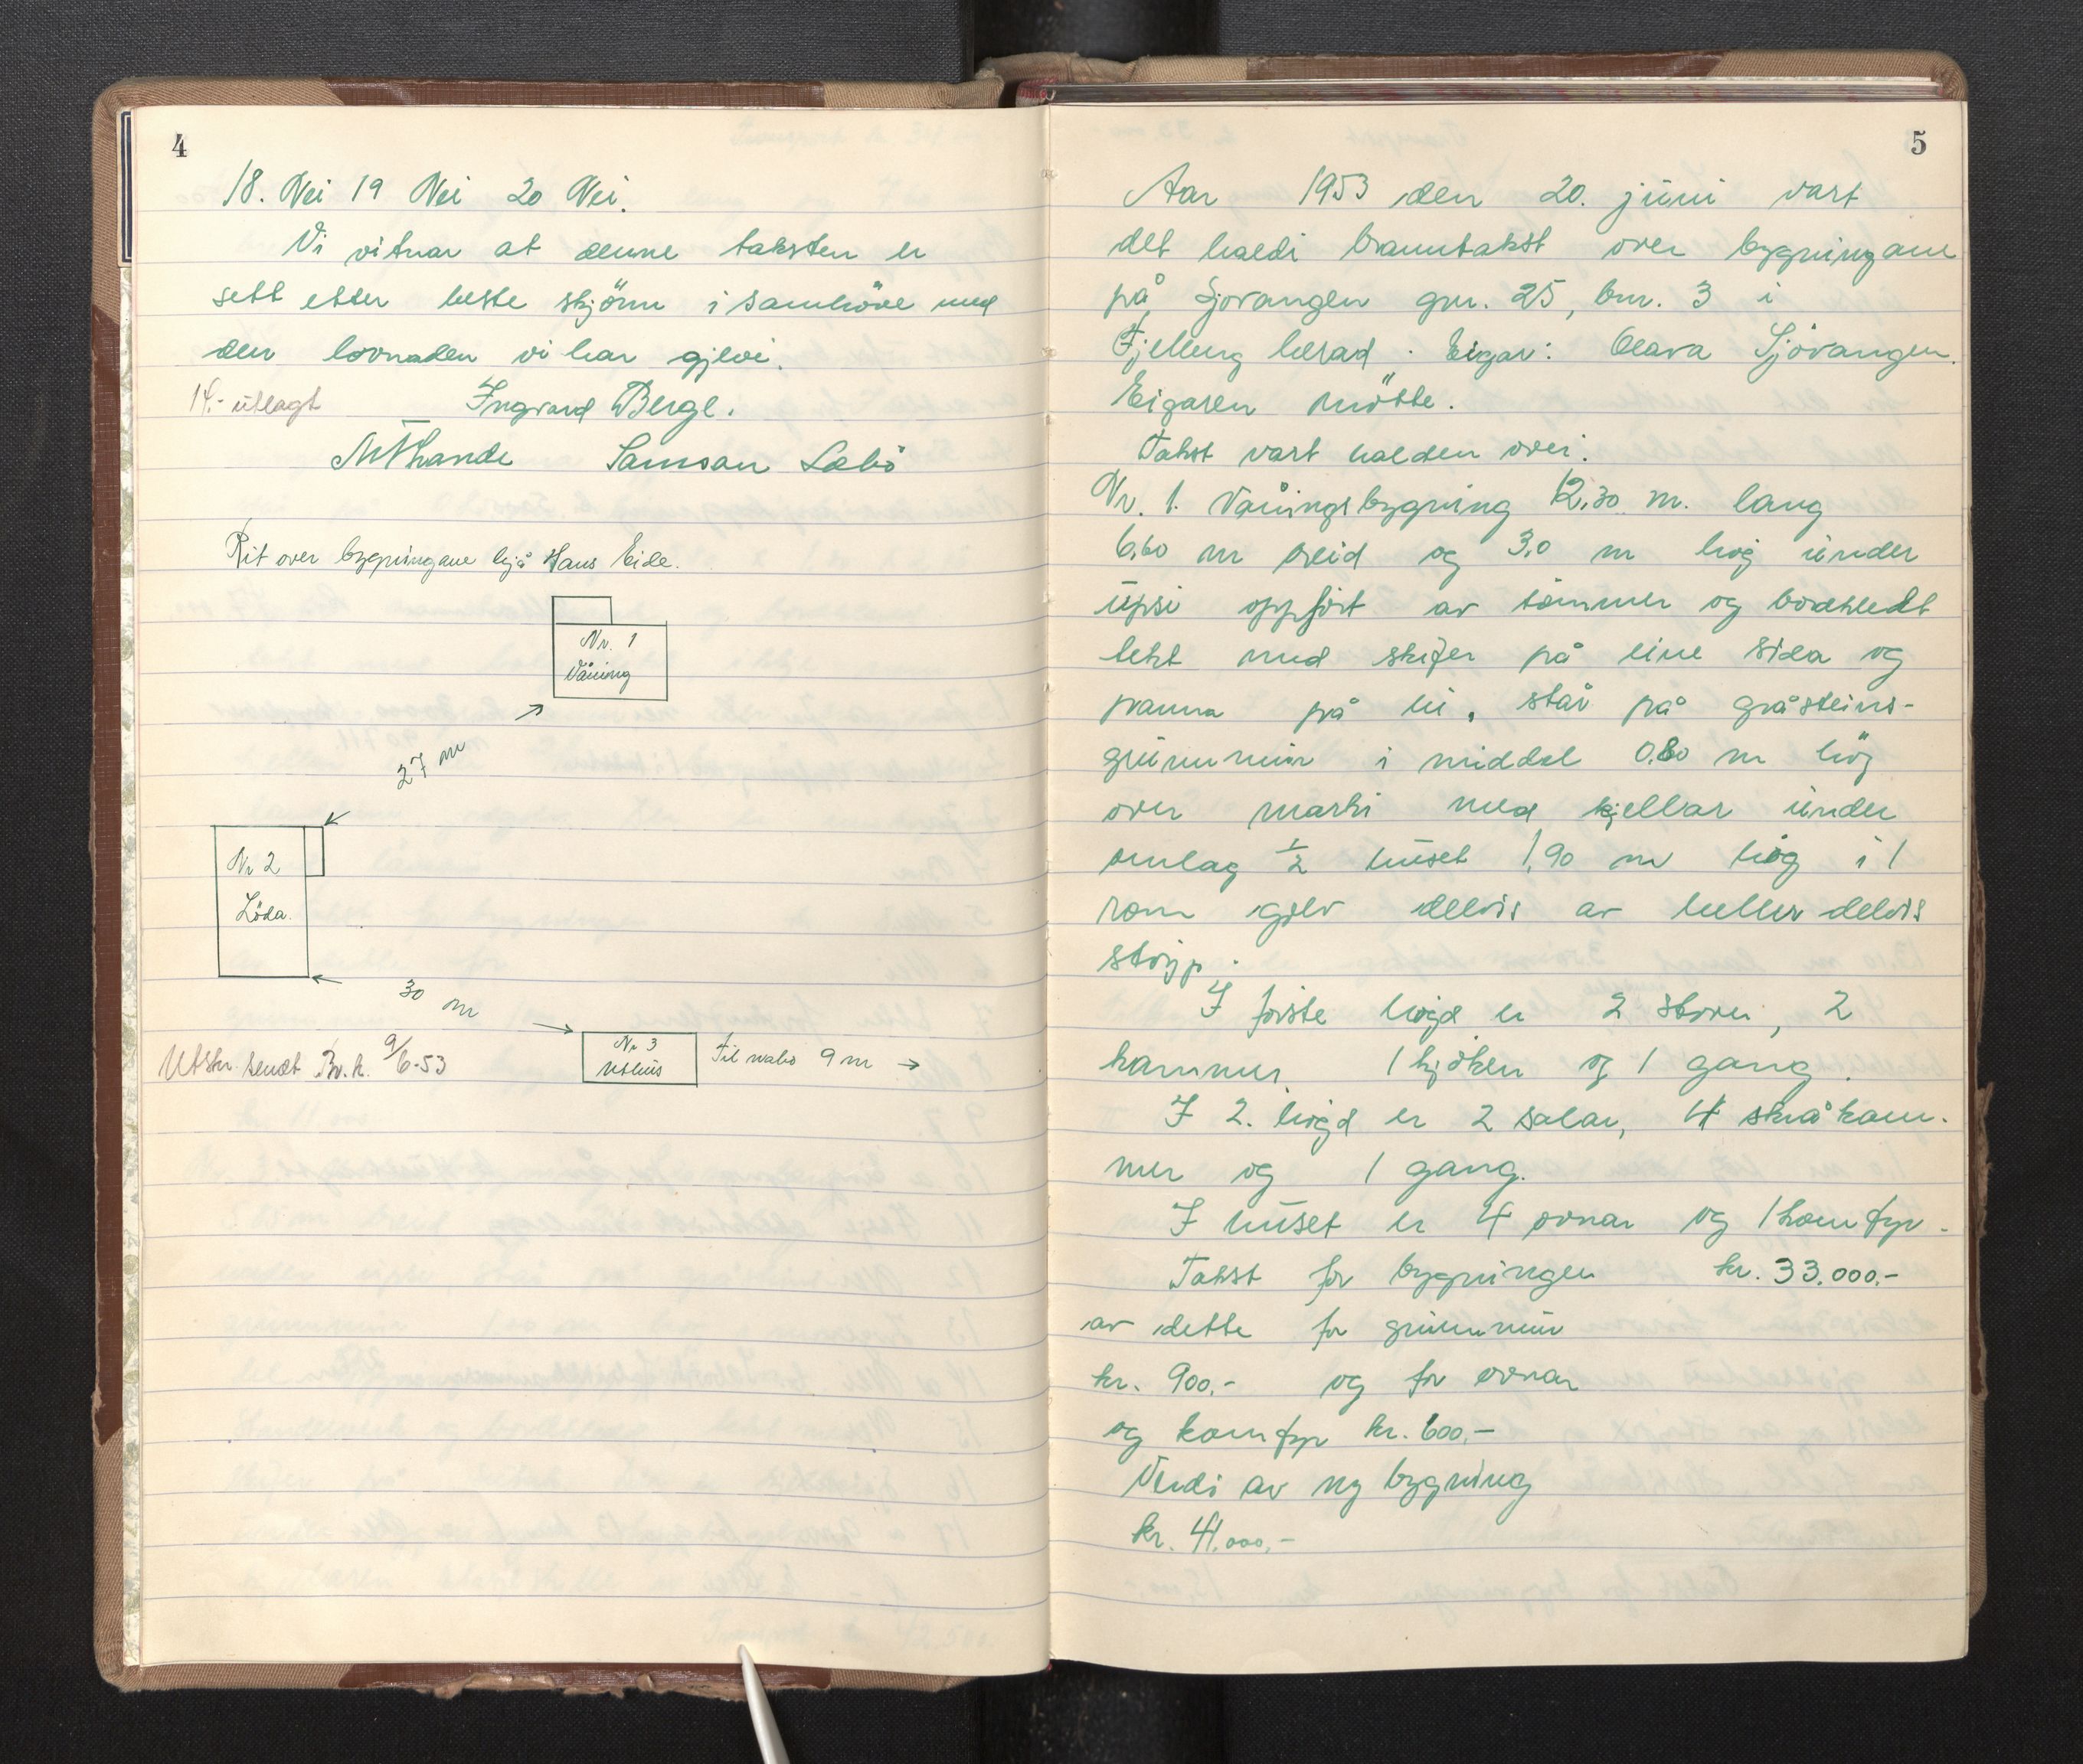 4
18. Nei 19 Nei 20 Nei.
Vi vitnar at denne taksten er
sett etter beste skjönn i samhöve med
den lovnaden vi har gjevi.
14.- utlagt
Ingvard Berge.
Samson Lebö
Rit over bygningane hjå Hans Eide.
Nr. 1
Våning
27 m
Nr 2
Löda.
30 m
Nr 3
Uthus
Til nabo 9 m
Utskr. sendt Br.k. 9/6-53
5
Aar 1953 den 20. juni vart
det haldi branntakst over bygningane
på Sjovangen gnr. 25, bnr. 3 i
Fjelberg herad. Eigar: Olava Sjövangen.
Eigaren mötte.
Takst vart halden over:
Nr. 1. Våningsbygning 12,30 m. lang
6,60 m breid og 3,0 m høg under
upsi oppført av tømmer og bordkledt
tekt med skifer på eine sida og
panna på hi, står på gråsteins-
grunnmur i middel 0,80 m høg
over marki med kjellar under
omlag 1/2 huset 1,90 m høg i 1
rom golv delvis av heller delvis
støyp.
I første høgd er 2 stover, 2
kammer, 1 kjøken og 1 gang.
I 2. høgd er 2 salar, 4 skråkam-
mer og 1 gang.
I huset er 4 ovnar og 1 komfyr.
Takst for bygningen kr. 33.000.-
av dette for grunnmur
kr. 900.- og for ovnar
og komfyr kr. 600.-
Verdi av ny bygning
kr. 41.000.-